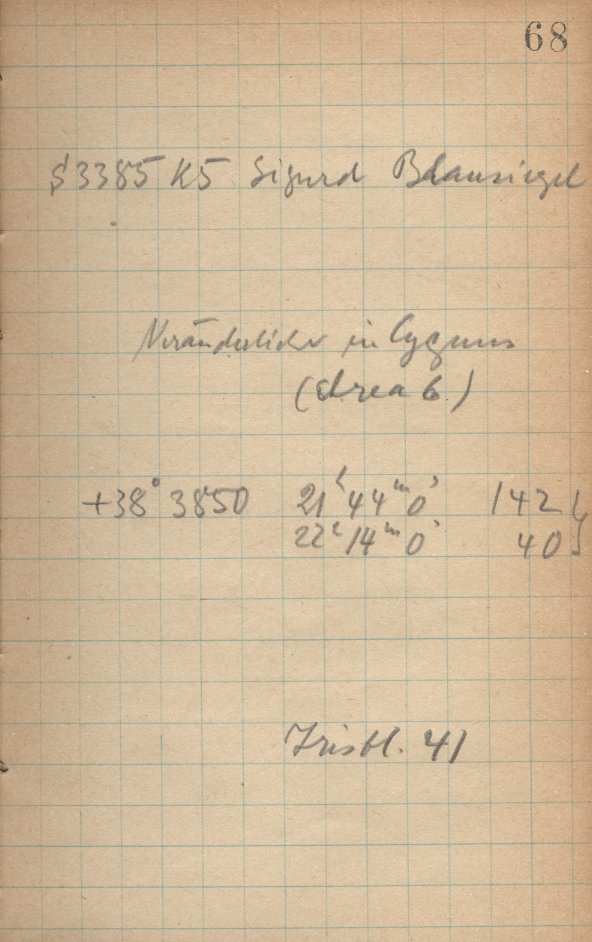 68
S 3385 K5 Sigurd Blausiegel
Veränderlicher in Cygnus
(Area 6)
+38° 3850 21ʰ 44ᵐ 0ˢ 142 }
22ʰ 14ᵐ 0ˢ 40
Irisbl. 41